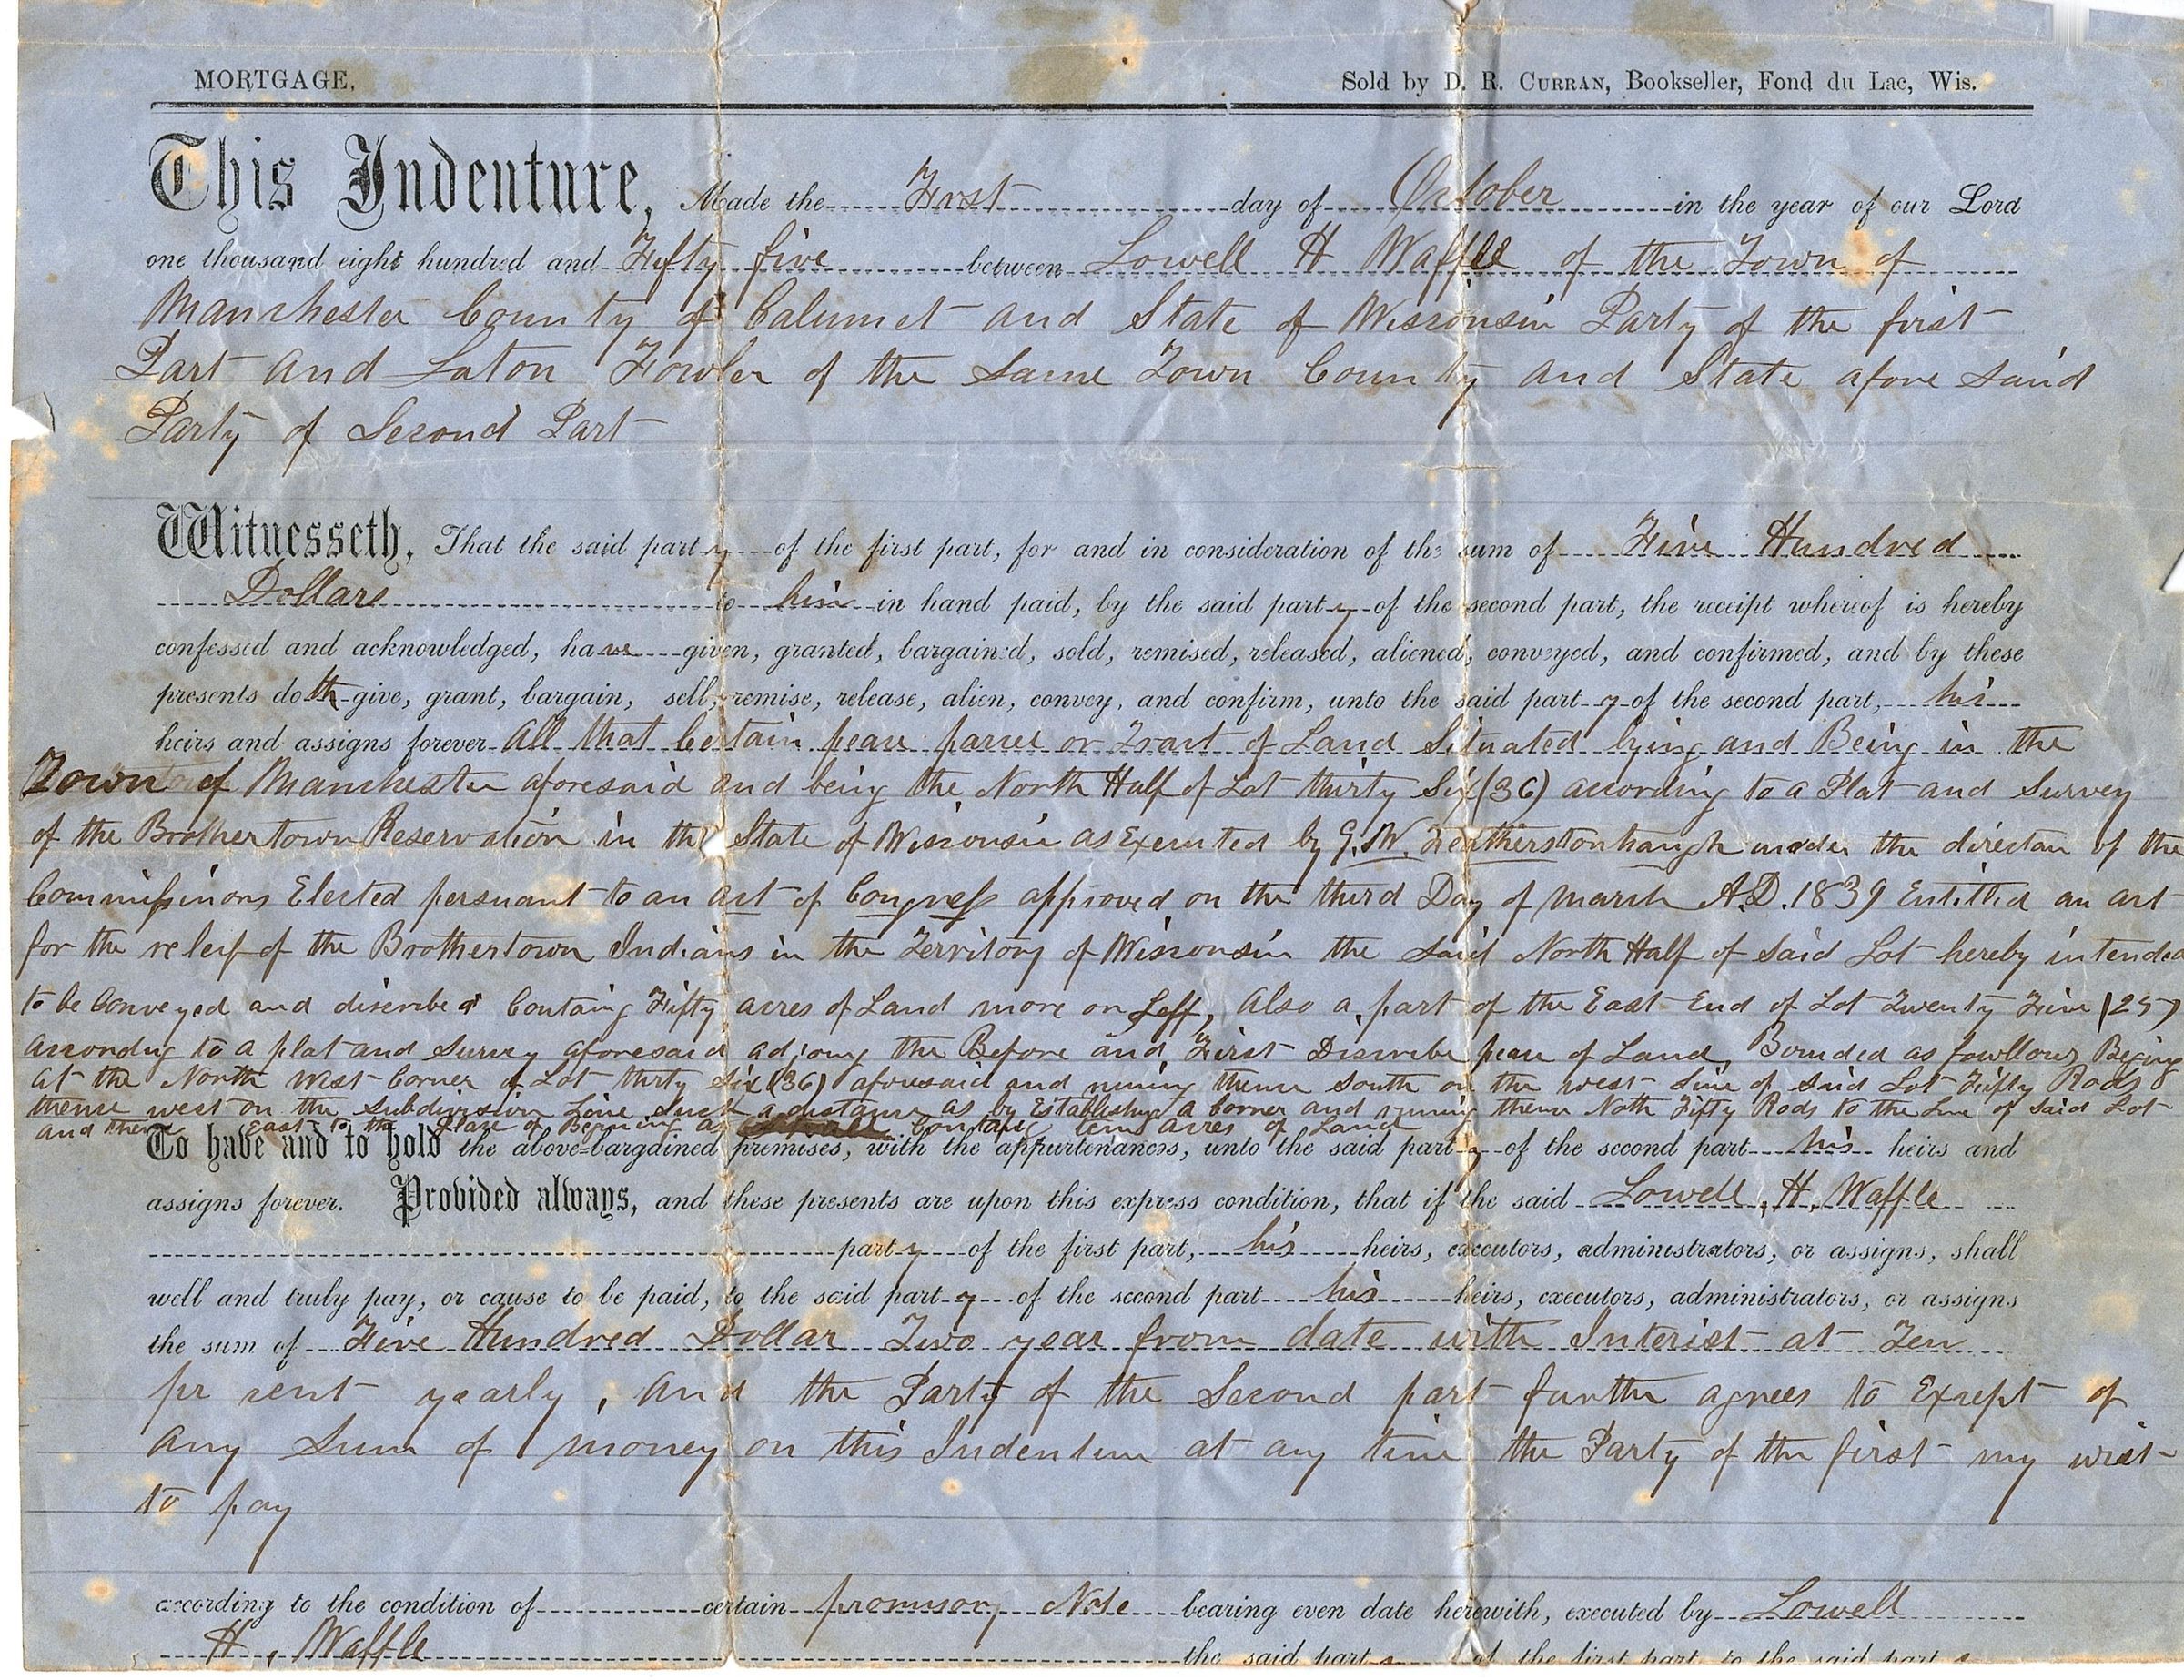 MORTGAGE.
Sold by D. R. CURRAN, Bookseller, Fond du Lac, Wis.
This Indenture, Made the First day of October in the year of our Lord
one thousand eight hundred and Fifty five between Lowell H Waffle of the Town of
Manchester County of Calumet and State of Wisconsin Party of the first
Part and Laton Fowler of the Same Town County and State afore said
Party of Second Part
Witnesseth, That the said party of the first part, for and in consideration of the sum of Five Hundred
Dollars to him in hand paid, by the said party of the second part, the receipt whereof is hereby
confessed and acknowledged, have given, granted, bargained, sold, remised, released, aliened, conveyed, and confirmed, and by these
presents doth give, grant, bargain, sell, remise, release, alien, convey, and confirm, unto the said party of the second part, his
heirs and assigns forever All that Certain peace parcel or Tract of Land Situated lying and Being in the
Town of Manchester aforesaid and being the North Half of Lot thirty Six (36) according to a Plat and Survey
of the Brothertown Reservation in the State of Wisconsin as Executed by G. W. Featherstonhaugh under the direction of the
Commissinors Elected persuant to an act of Congress approved on the third Day of march A.D. 1839 Entitled an act
for the releif of the Brothertown Indians in the Territory of Wisconsin the said North Half of Said Lot hereby intended
to be Conveyed and discribed Containg Fifty acres of Land more or Less, Also a part of the East End of Lot Twenty Five (25)
According to a plat and Survey aforesaid adjoing the Before and First Discribe peace of Land, Bounded as fowllows Beging
at the North West Corner of Lot thirty Six (36) aforesaid and runing thence South on the west Line of Said Lot Fifty Rods
thence west on the Subdivision Line Such a distance as by Establishing a Corner and runing thence Noth Fifty Rods to the Line of Said Lot
and thence East to the Place of Begining as Containg acres of Land
To have and to hold the above=bargained premises, with the appurtenances, unto the said party of the second part his heirs and
assigns forever. Provided always, and these presents are upon this express condition, that if the said Lowell, H, Waffle
party of the first part, his heirs, executors, administrators, or assigns, shall
well and truly pay, or cause to be paid, to the said party of the second part his heirs, executors, administrators, or assigns
the sum of Five Hundred Dollar Two year from date with Interist at Ten
pr cent yearly, And the Party of the Second part further agrees to Except of
any Sum of money on this Indenture at any time the Party of the first my wist
to pay
according to the condition of certain promisory Note bearing even date herewith, executed by Lowell
H, Waffle the said part of the first part, to the said part